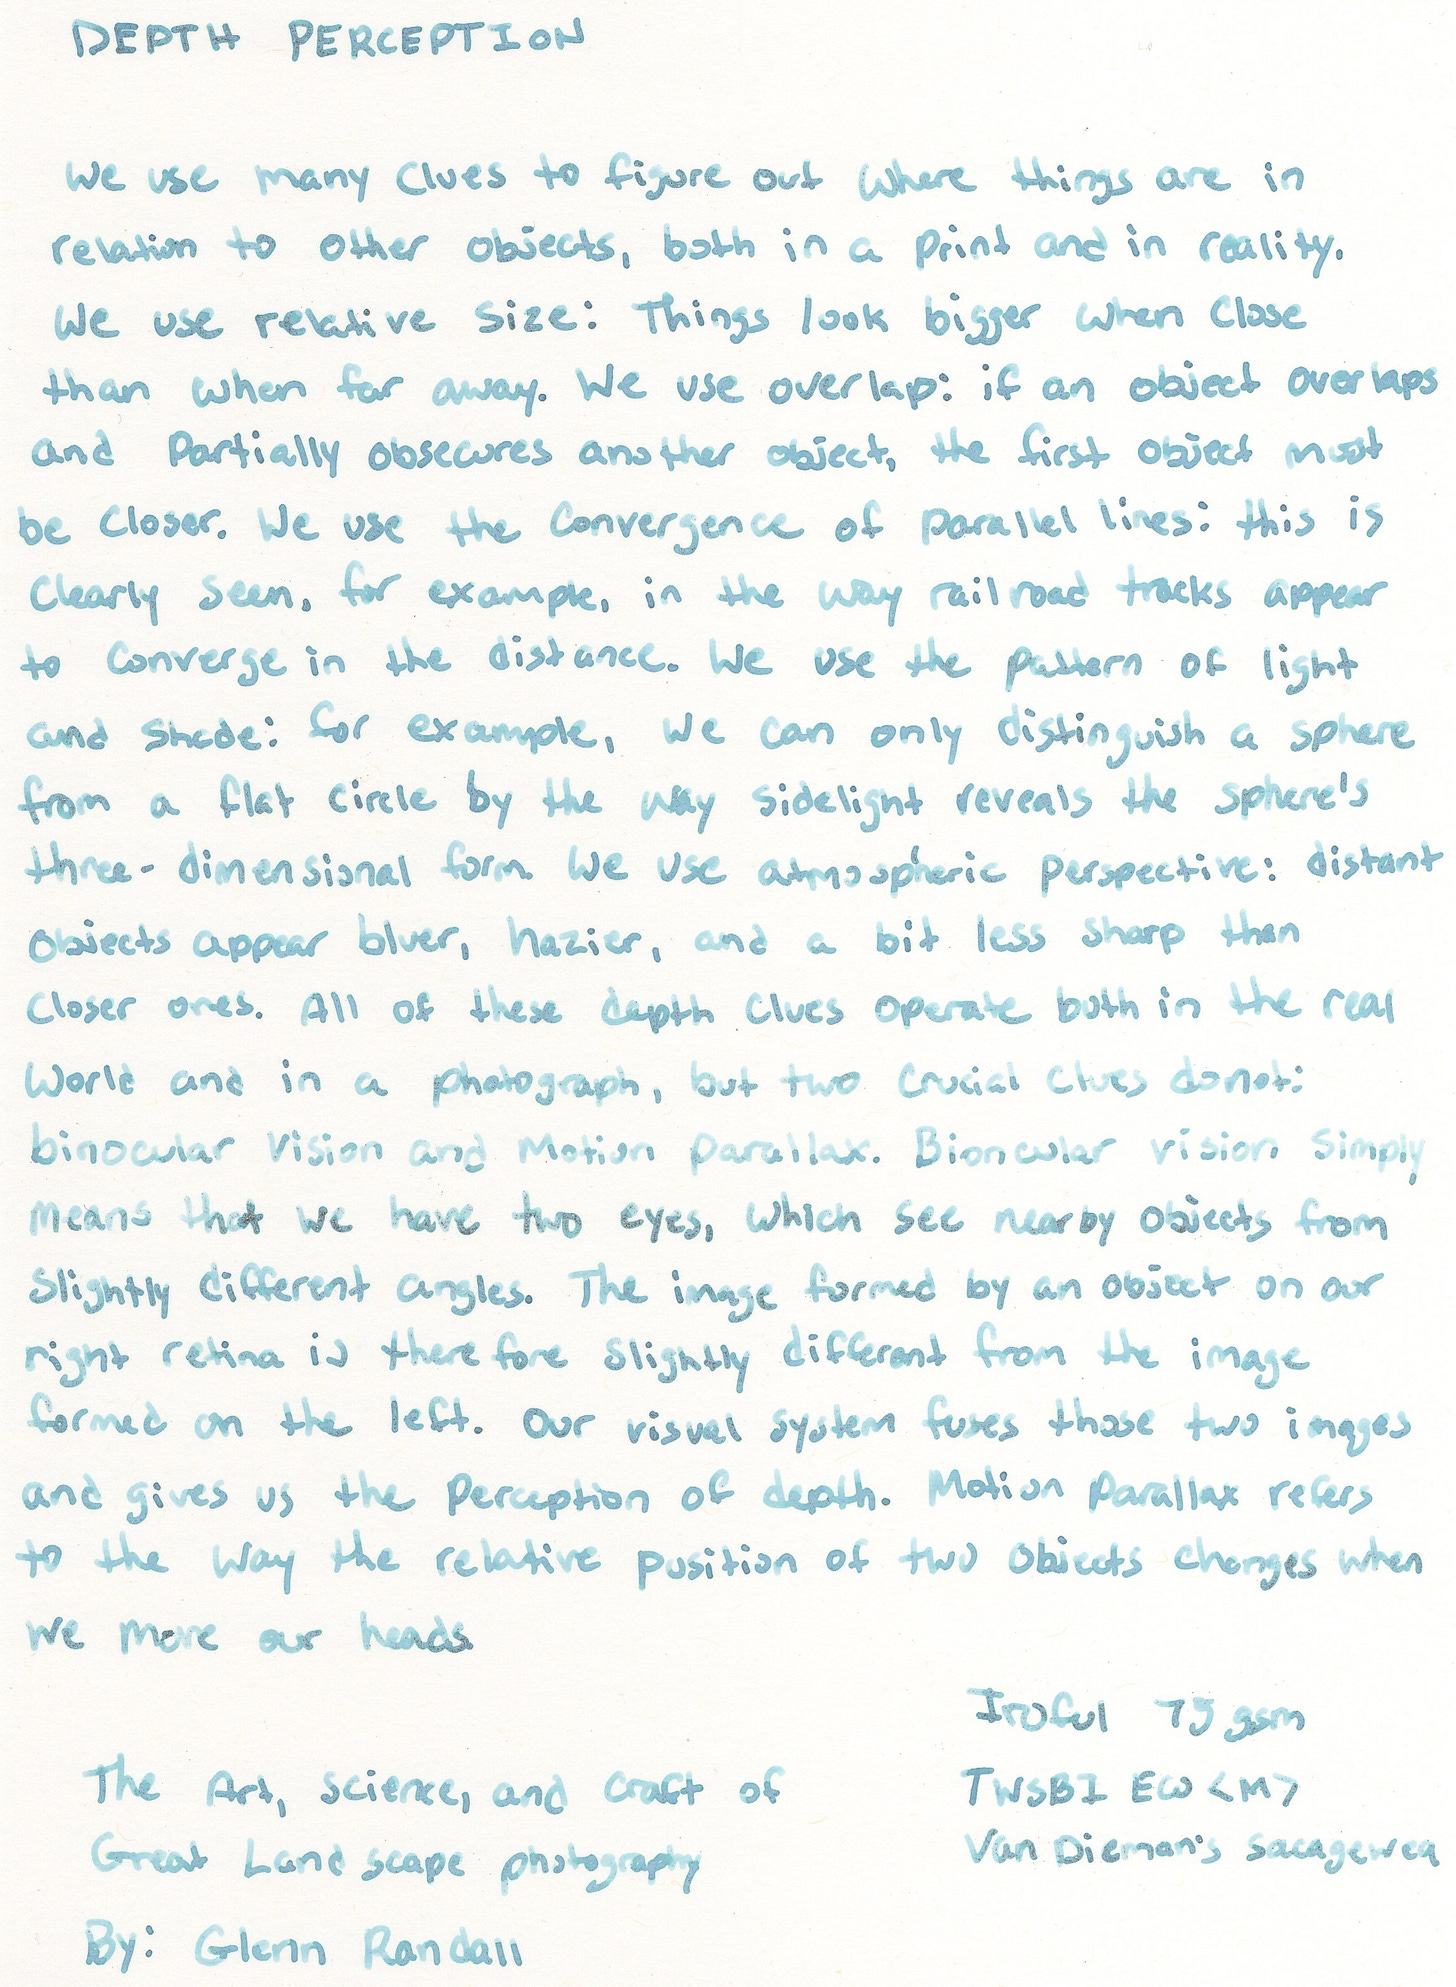 DEPTH PERCEPTION
We use many clues to figure out where things are in
relation to other objects, both in a print and in reality.
We use relative size: Things look bigger when close
than when far away. We use overlap: if an object overlaps
and partially obsecures another object, the first object must
be closer. We use the convergence of parallel lines: this is
clearly seen, for example, in the way railroad tracks appear
to converge in the distance. We use the pattern of light
and shade: for example, we can only distinguish a sphere
from a flat circle by the way sidelight reveals the sphere's
three-dimensional form. We use atmospheric perspective: distant
objects appear bluer, hazier, and a bit less sharp than
closer ones. All of these depth clues operate both in the real
world and in a photograph, but two crucial clues do not:
binocular vision and motion parallax. Bioncular vision simply
means that we have two eyes, which see nearby objects from
slightly different angles. The image formed by an object on our
right retina is therefore slightly different from the image
formed on the left. Our visual system fuses those two images
and gives us the perception of depth. Motion parallax refers
to the way the relative position of two objects changes when
we move our heads
The Art, science, and craft of
Great Landscape photography
By: Glenn Randall
Iroful 75 gsm
TWSBI ECO <M>
Van Dieman's sacagewea